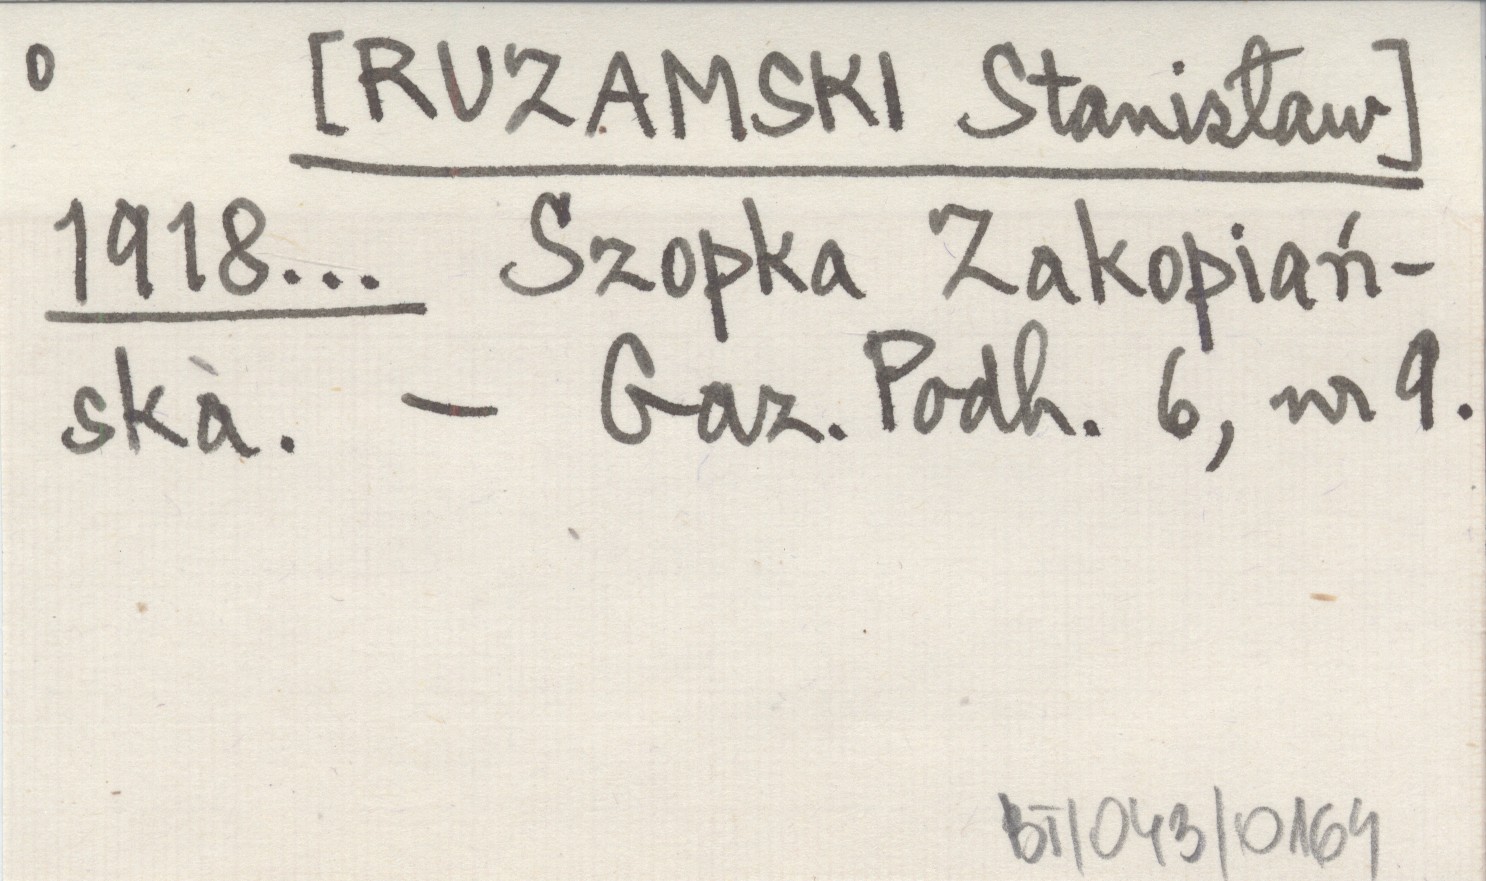 o [RUZAMSKI Stanisław]
1918... Szopka Zakopiań-
ska. — Gaz. Podh. 6, nr 9.
BT/043/0164